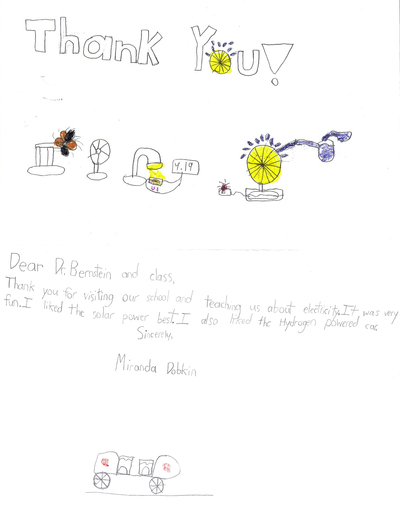 Thank You!
4.19
Dear Dr. Bernstein and class,
Thank you for visiting our school and teaching us about electricity. It was very
fun. I liked the solar power best. I also liked the Hydrogen powered car.
Sincerely,
Miranda Dobkin